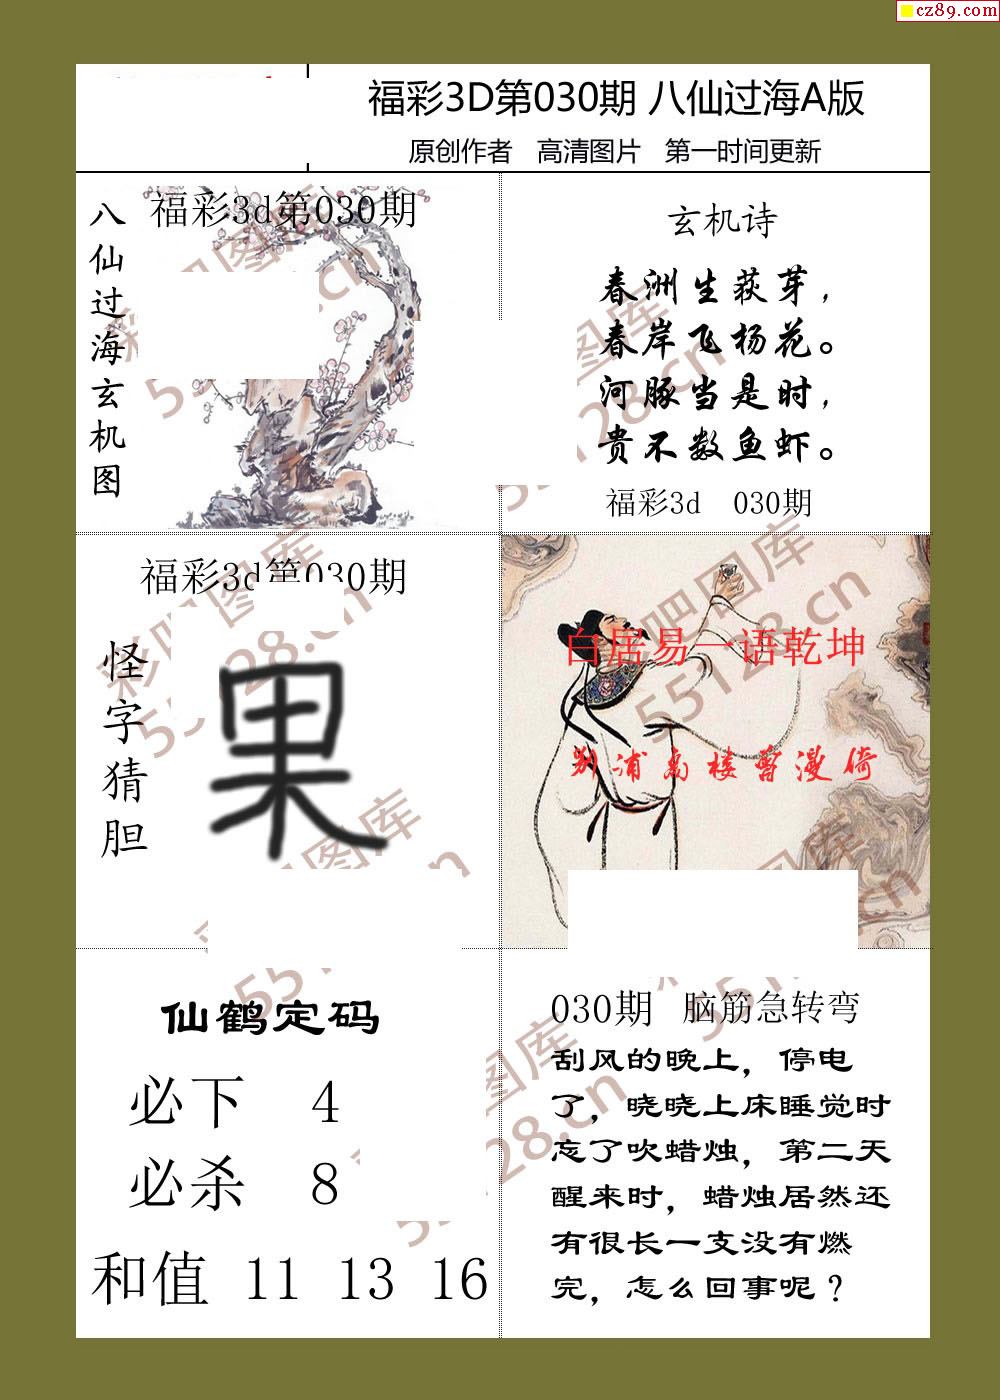 cz89.com
福彩3D第030期 八仙过海A版
原创作者 高清图片 第一时间更新
八仙过海玄机图
福彩3d第030期
玄机诗
春洲生荻芽，
春岸飞杨花。
河豚当是时，
贵不数鱼虾。
福彩3d 030期
福彩3d第030期
怪字猜胆
果
白居易一语乾坤
别浦高楼曾漫倚
仙鹤定码
必下 4
必杀 8
和值 11 13 16
030期 脑筋急转弯
刮风的晚上，停电
了，晓晓上床睡觉时
忘了吹蜡烛，第二天
醒来时，蜡烛居然还
有很长一支没有燃
完，怎么回事呢？
彩吧图库
55128.cn